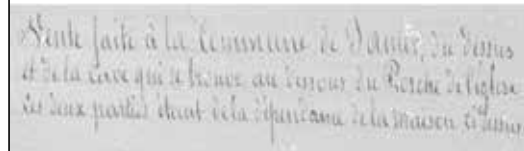 Vente faite à la Commune de Vanves, du dessus
et de la cave qui se trouve au dessous du Porche de l'église
les deux parties étant de la dépendance de la maison ci-dessus